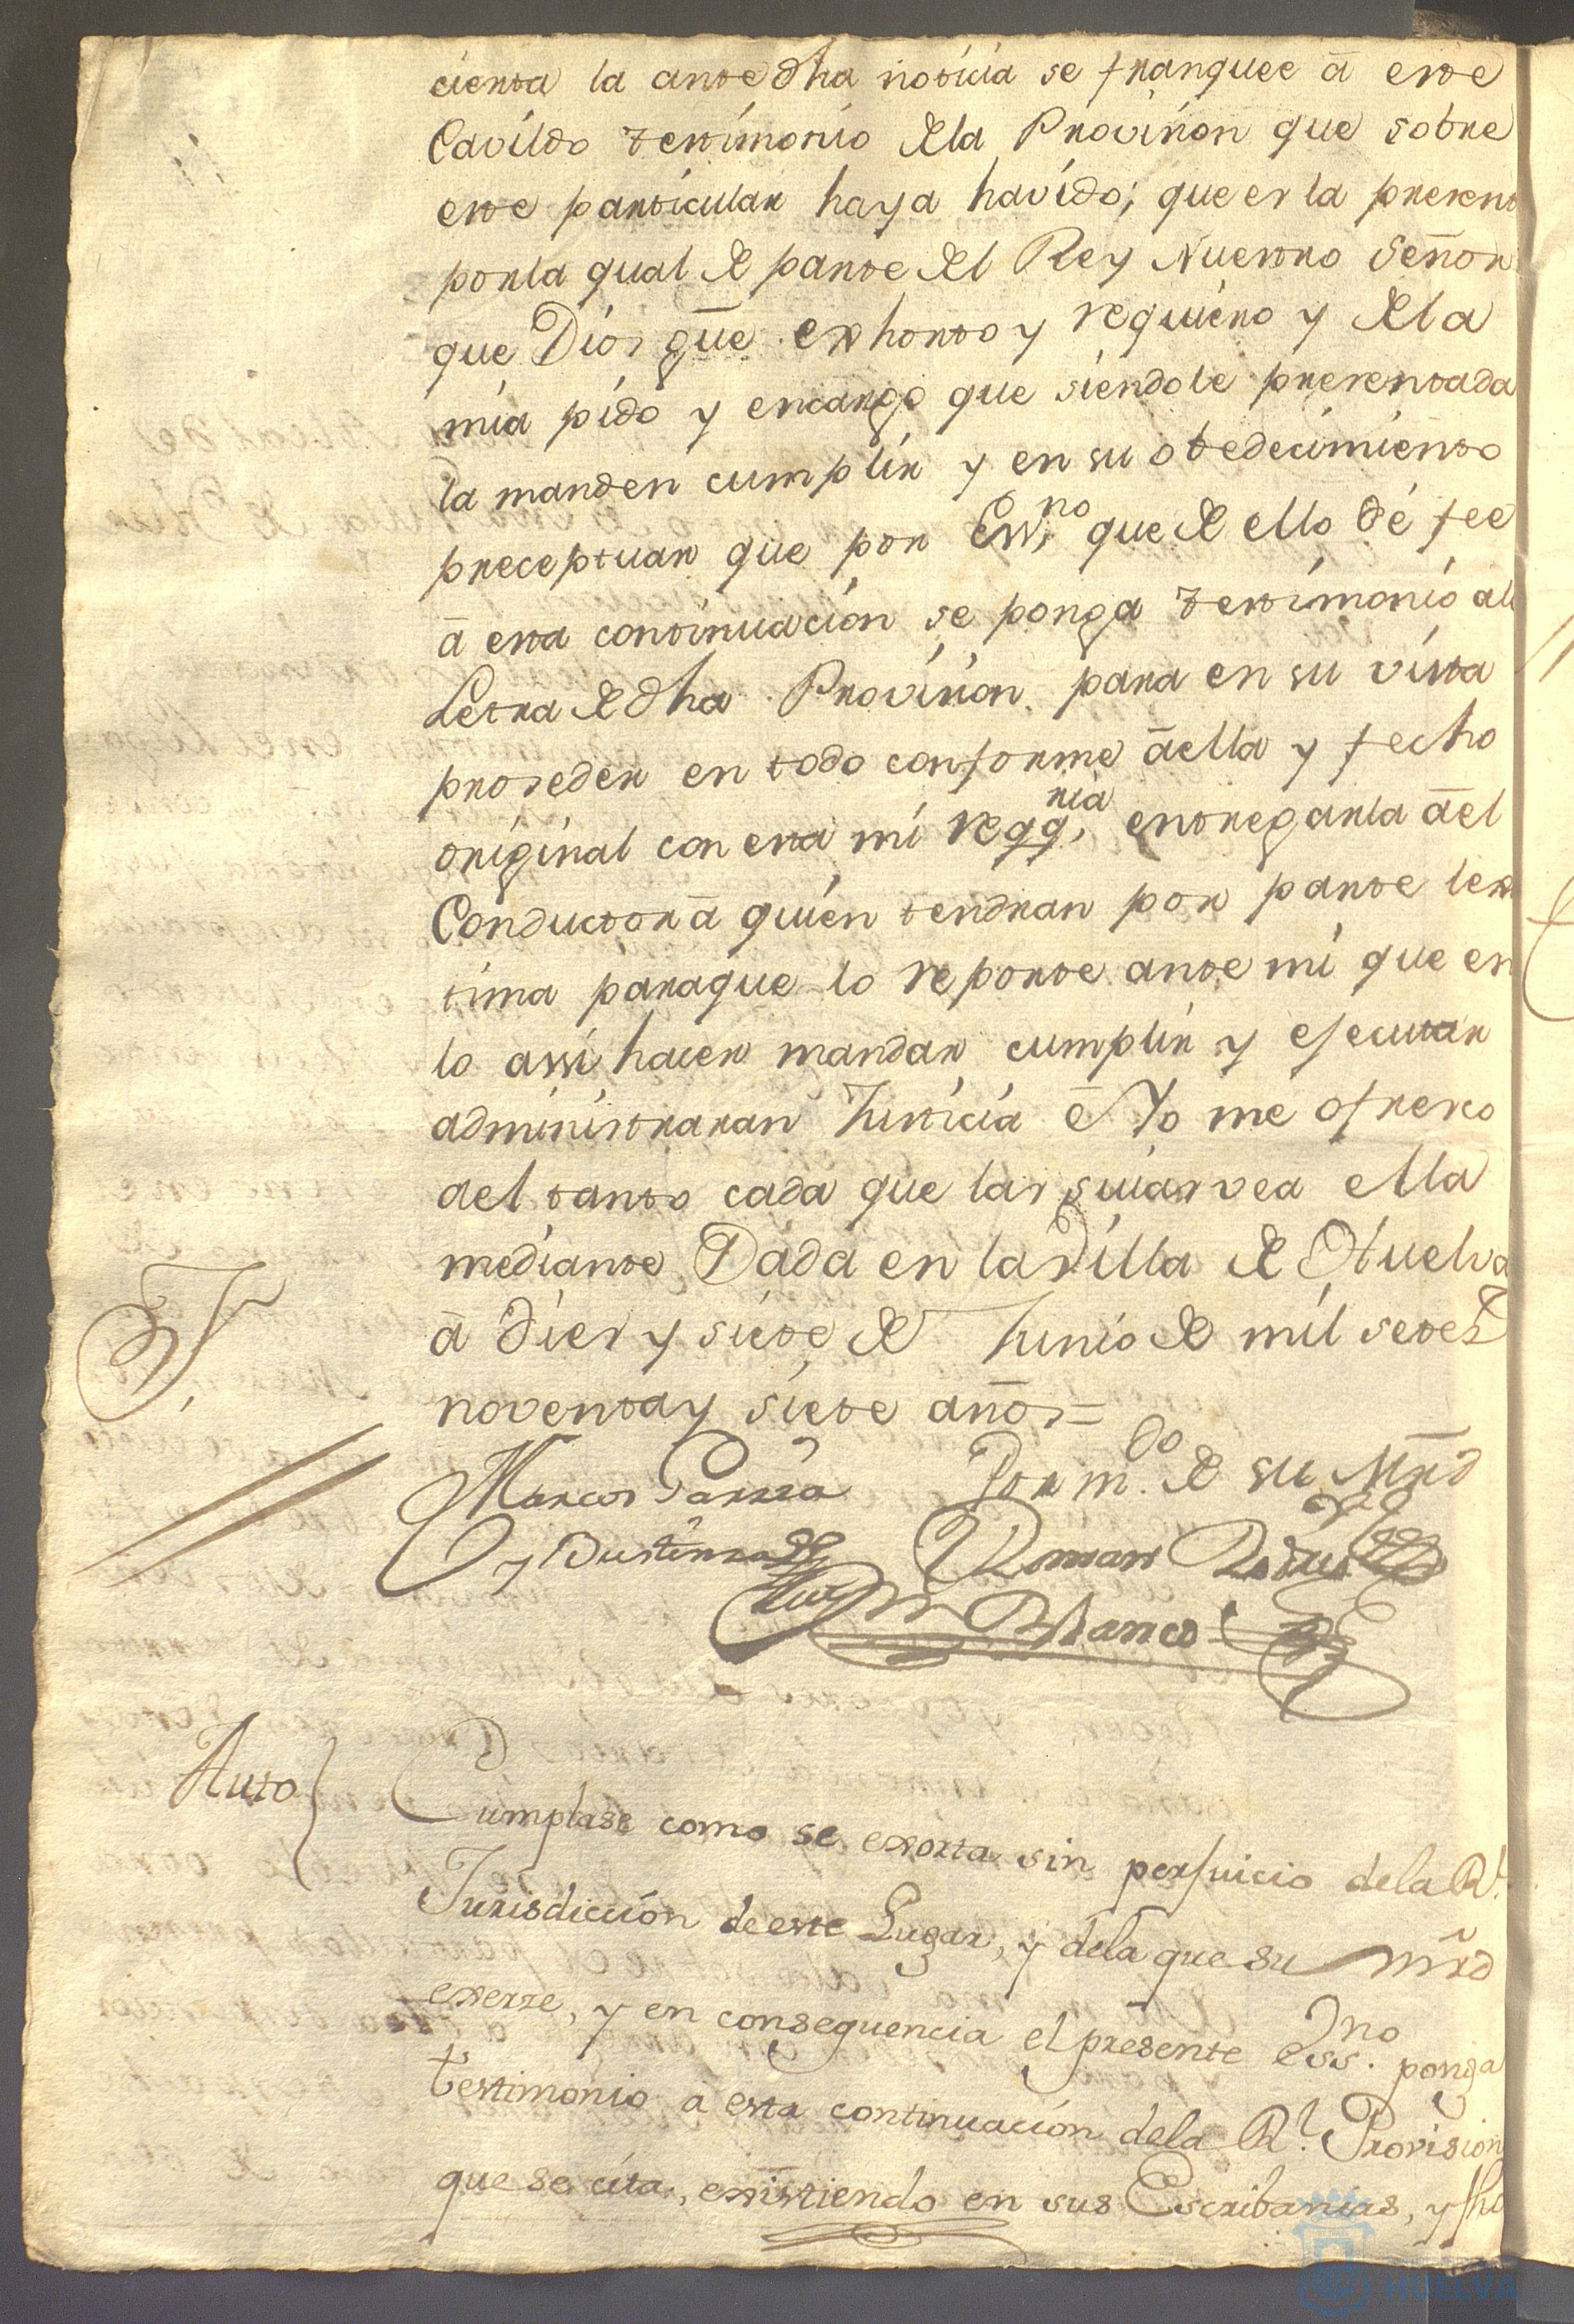 cierta la ante dha noticia se franquee â este
Cavildo testimonio de la Provision que sobre
este particular haya havido; que es la present
por la qual de parte del Rey Nuestro Señor
que Dios gue. exhorto y requiero y de la
mia pido y encargo que siendole presentada
la manden cumplir y en su obedecimiento
preceptuar que por Essno. que de ello dé fee
â esta continuacion se ponga testimonio al
Letra de dha Provision para en su vista
proseder en todo conforme âella y fecho
original con esta mi reqqria, entregarla âel
Conductor â quien tendran por parte lex
tima paraque lo reporte ante mi que en
lo assi hacer mandar cumplir y ejecutar
administraran Justicia ê Yo me ofresco
ael tanto cada que las suias vea ella
mediante Dada en la Villa de Huelva
â dies y siete de Junio de mil setes
noventa y siete años=
Marcos Parra Por mdo. de su Mrd
Roman Rodrig
Blanco
Auto
Cumplase como se exorta sin perjuicio dela Rl.
Jurisdiccion de este Lugar, y dela que su mrd
exerze, y en consequencia el presente Essno. ponga
testimonio a esta continuacion dela Rl. Provision
que se cita, existiendo en sus Escribanias, y fho
HUELVA